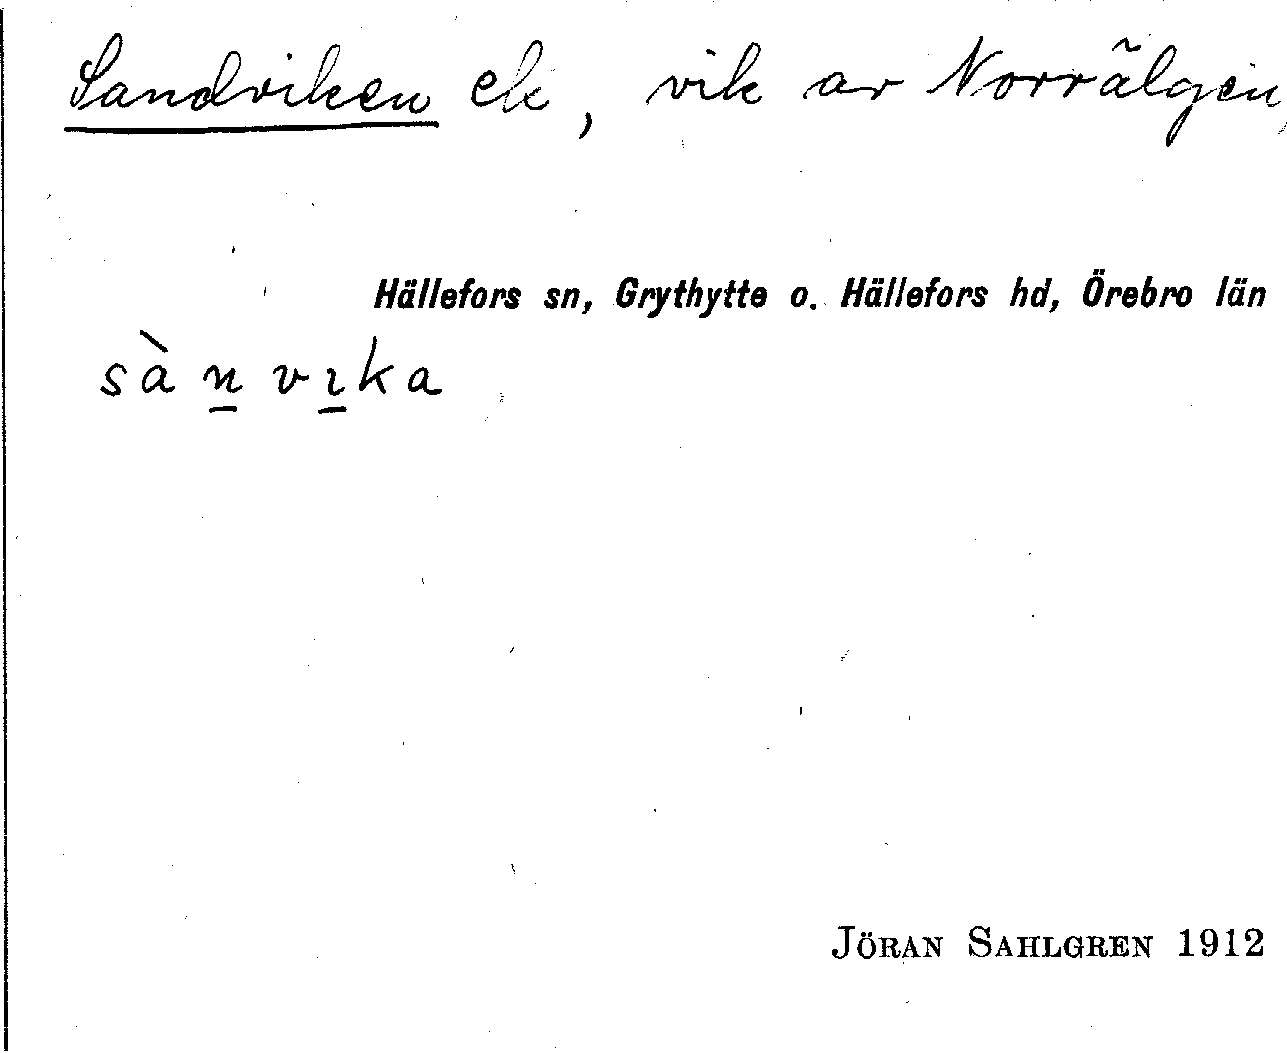 Sandviken ek, vik av Norrälgen,
Hällefors sn, Grythytte o. Hällefors hd, Örebro län
sàn̲vı̲ka
JÖRAN SAHLGREN 1912